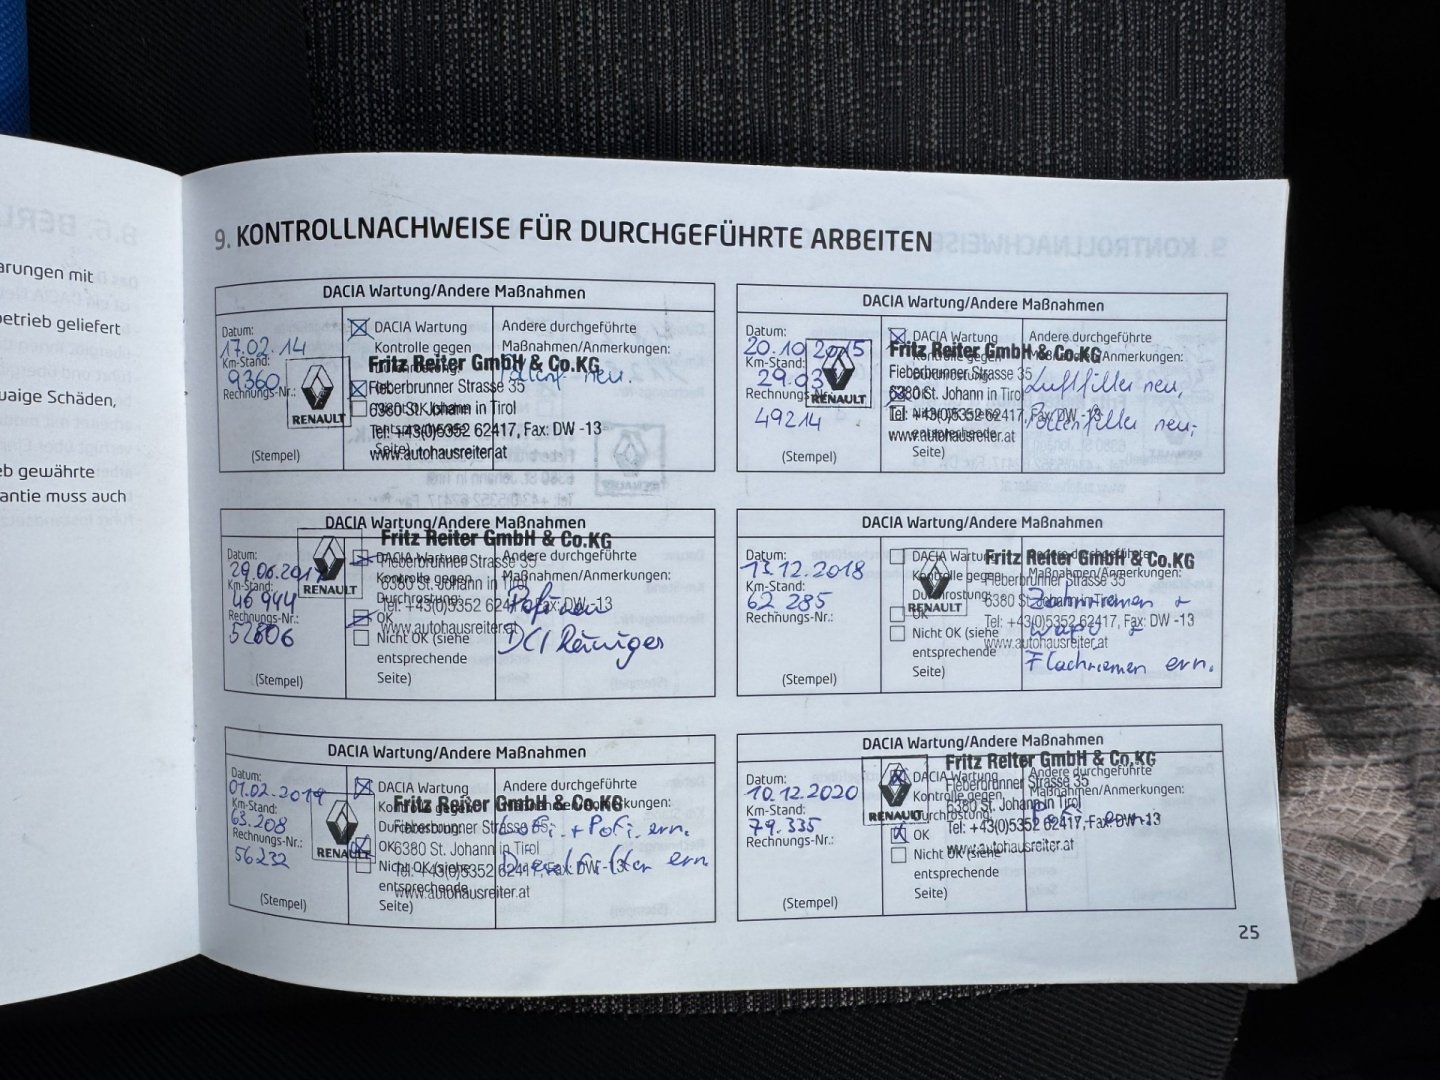 arungen mit
etrieb geliefert
uaige Schäden,
eb gewährte
antie muss auch
9. KONTROLLNACHWEISE FÜR DURCHGEFÜHRTE ARBEITEN
DACIA Wartung/Andere Maßnahmen
Datum:
17.02.14
Km-Stand:
9360
Rechnungs-Nr.:
(Stempel)
DACIA Wartung
Kontrolle gegen
Seite)
Andere durchgeführte
Maßnahmen/Anmerkungen:
neu.
RENAULT
Fritz Reiter GmbH & Co.KG
Fieberbrunner Strasse 35
6380 St. Johann in Tirol
Tel: +43(0)5352 62417, Fax: DW -13
www.autohausreiter.at
DACIA Wartung/Andere Maßnahmen
Datum:
20.10.2015
Km-Stand:
29.03
Rechnungs
49214
(Stempel)
DACIA Wartung
Kontrolle gegen
Durchrostung:
entsprechende
Seite)
Andere durchgeführte
Maßnahmen/Anmerkungen:
Luftfilter neu,
Pollenfilter neu,
RENAULT
Fritz Reiter GmbH & Co.KG
Fieberbrunner Strasse 35
6380 St. Johann in Tirol
Tel: +43(0)5352 62417, Fax: DW -13
www.autohausreiter.at
DACIA Wartung/Andere Maßnahmen
Datum:
29.06.2017
Km-Stand:
46 944
Rechnungs-Nr.:
52606
(Stempel)
DACIA Wartung
Kontrolle gegen
Durchrostung:
OK
Nicht OK (siehe
entsprechende
Seite)
Andere durchgeführte
Maßnahmen/Anmerkungen:
Pofi neu
DCI Reiniger
RENAULT
Fritz Reiter GmbH & Co.KG
Fieberbrunner Strasse 35
6380 St. Johann in Tirol
Tel: +43(0)5352 62417, Fax: DW -13
www.autohausreiter.at
DACIA Wartung/Andere Maßnahmen
Datum:
13.12.2018
Km-Stand:
62 285
Rechnungs-Nr.:
(Stempel)
DACIA Wartung
Kontrolle gegen
Durchrostung:
OK
Nicht OK (siehe
entsprechende
Seite)
Andere durchgeführte
Maßnahmen/Anmerkungen:
Zahnriemen +
Wapu +
Flachriemen ern.
RENAULT
Fritz Reiter GmbH & Co.KG
Fieberbrunner Strasse 35
6380 St. Johann in Tirol
Tel: +43(0)5352 62417, Fax: DW -13
www.autohausreiter.at
DACIA Wartung/Andere Maßnahmen
Datum:
01.02.2019
Km-Stand:
63.208
Rechnungs-Nr.:
56232
(Stempel)
DACIA Wartung
Kontrolle gegen
Durchrostung:
OK
Nicht OK (siehe
entsprechende
Seite)
Andere durchgeführte
Maßnahmen/Anmerkungen:
Lufi + Pofi ern.
Dieselfilter ern
RENAULT
Fritz Reiter GmbH & Co.KG
Fieberbrunner Strasse 35
6380 St. Johann in Tirol
Tel: +43(0)5352 62417, Fax: DW -13
www.autohausreiter.at
DACIA Wartung/Andere Maßnahmen
Datum:
10.12.2020
Km-Stand:
79.335
Rechnungs-Nr.:
(Stempel)
DACIA Wartung
Kontrolle gegen
Durchrostung:
OK
Nicht OK (siehe
entsprechende
Seite)
Andere durchgeführte
Maßnahmen/Anmerkungen:
ern.
RENAULT
Fritz Reiter GmbH & Co.KG
Fieberbrunner Strasse 35
6380 St. Johann in Tirol
Tel: +43(0)5352 62417, Fax: DW -13
www.autohausreiter.at
25